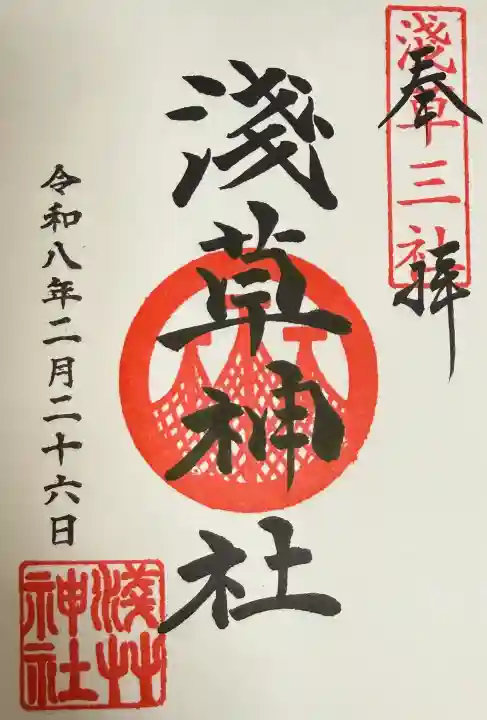 淺草三社
奉拝
淺草神社
令和八年二月二十六日
淺草
神社